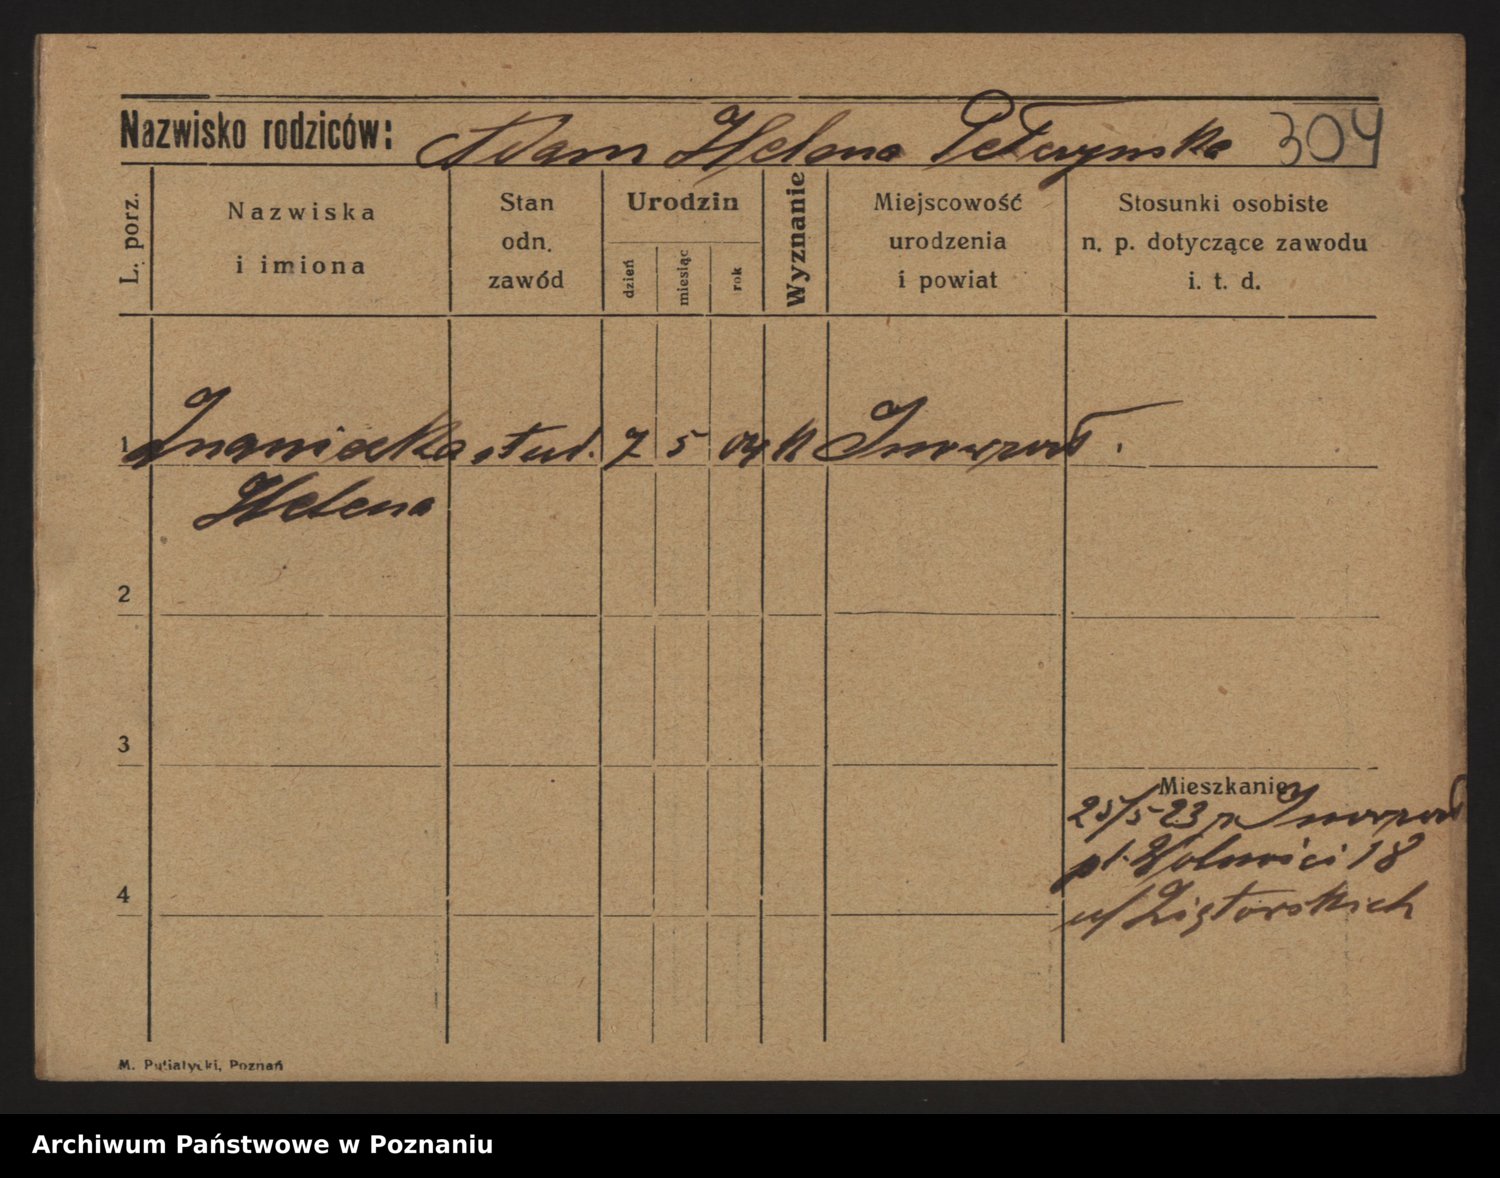 Nazwisko rodziców: Adam Helena Petczynska 304
L. porz.
Nazwiska
i imiona
Stan
odn.
zawód
Urodzin
dzień
miesiąc
rok
Wyznanie
Miejscowość
urodzenia
i powiat
Stosunki osobiste
n. p. dotyczące zawodu
i. t. d.
1 Znaniecka stud. 7 5 04 k Inowrocł.
Helena
2
3
Mieszkanie
25/5 23 Inowrocł
pl. Wolności 18
4
u/
M. Putiatycki, Poznań
Archiwum Państwowe w Poznaniu